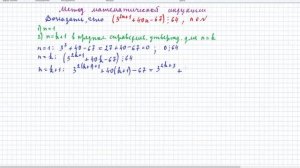 Метод математической индукции
Доказать, что (3^{2n+1}+40n-67)⋮64, n∈N
1) n=1
2) n=k+1 в предпол. справедлив. утвержд. для n=k
n=1: 3³+40-67=27+40-67=0, 0⋮64
n=k: (3^{2k+1}+40k-67)⋮64
n=k+1: 3^{2(k+1)+1}+40(k+1)-67=3^{2k+3}+